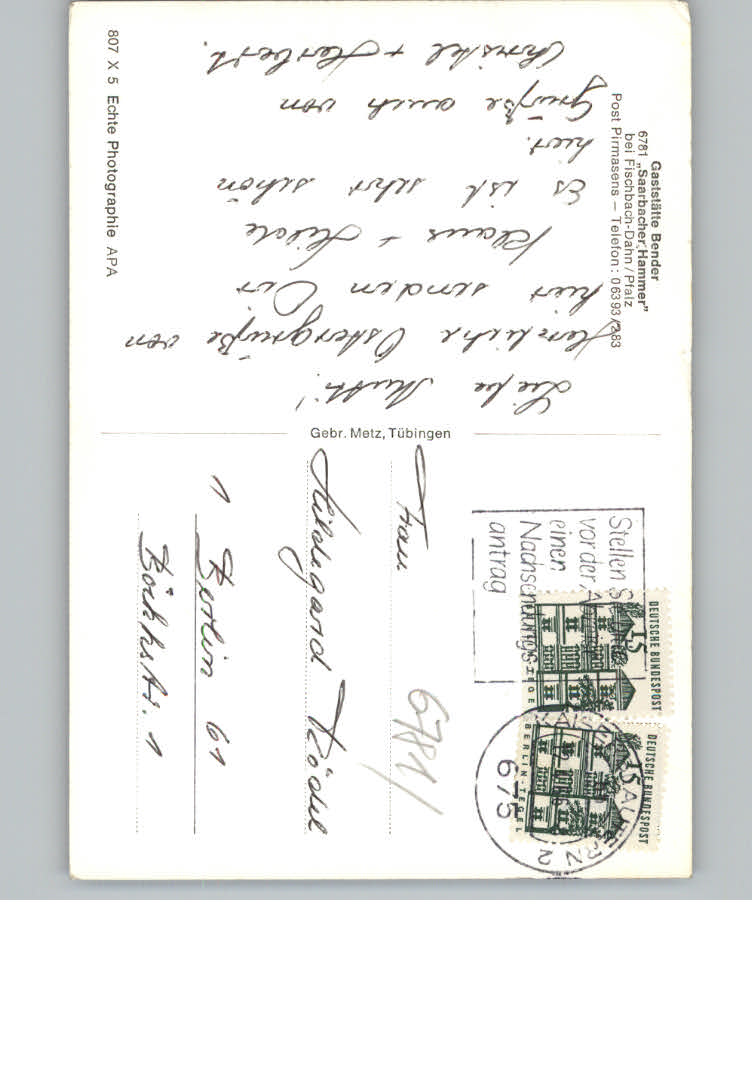 Gaststätte Bender
6781 „Saarbacher Hammer"
bei Fischbach-Dahn / Pfalz
Post Pirmasens – Telefon: 06393/283
Liebe Mutti!
Herzliche Ostergrüße von
hier senden Dir
Klaus + Hilde
Es ist sehr schön
hier.
Grüße auch von
Christel + Herbert.
807 X 5 Echte Photographie APA
Gebr. Metz, Tübingen
Stellen S
vor der
einen
Nachsendungs
antrag
DEUTSCHE BUNDESPOST
15
BERLIN-TEGEL
DEUTSCHE BUNDESPOST
15
BERLIN-TEGEL
675
2
6781/
Frau
Hildegard
1 Berlin 61
Böckhstr. 1